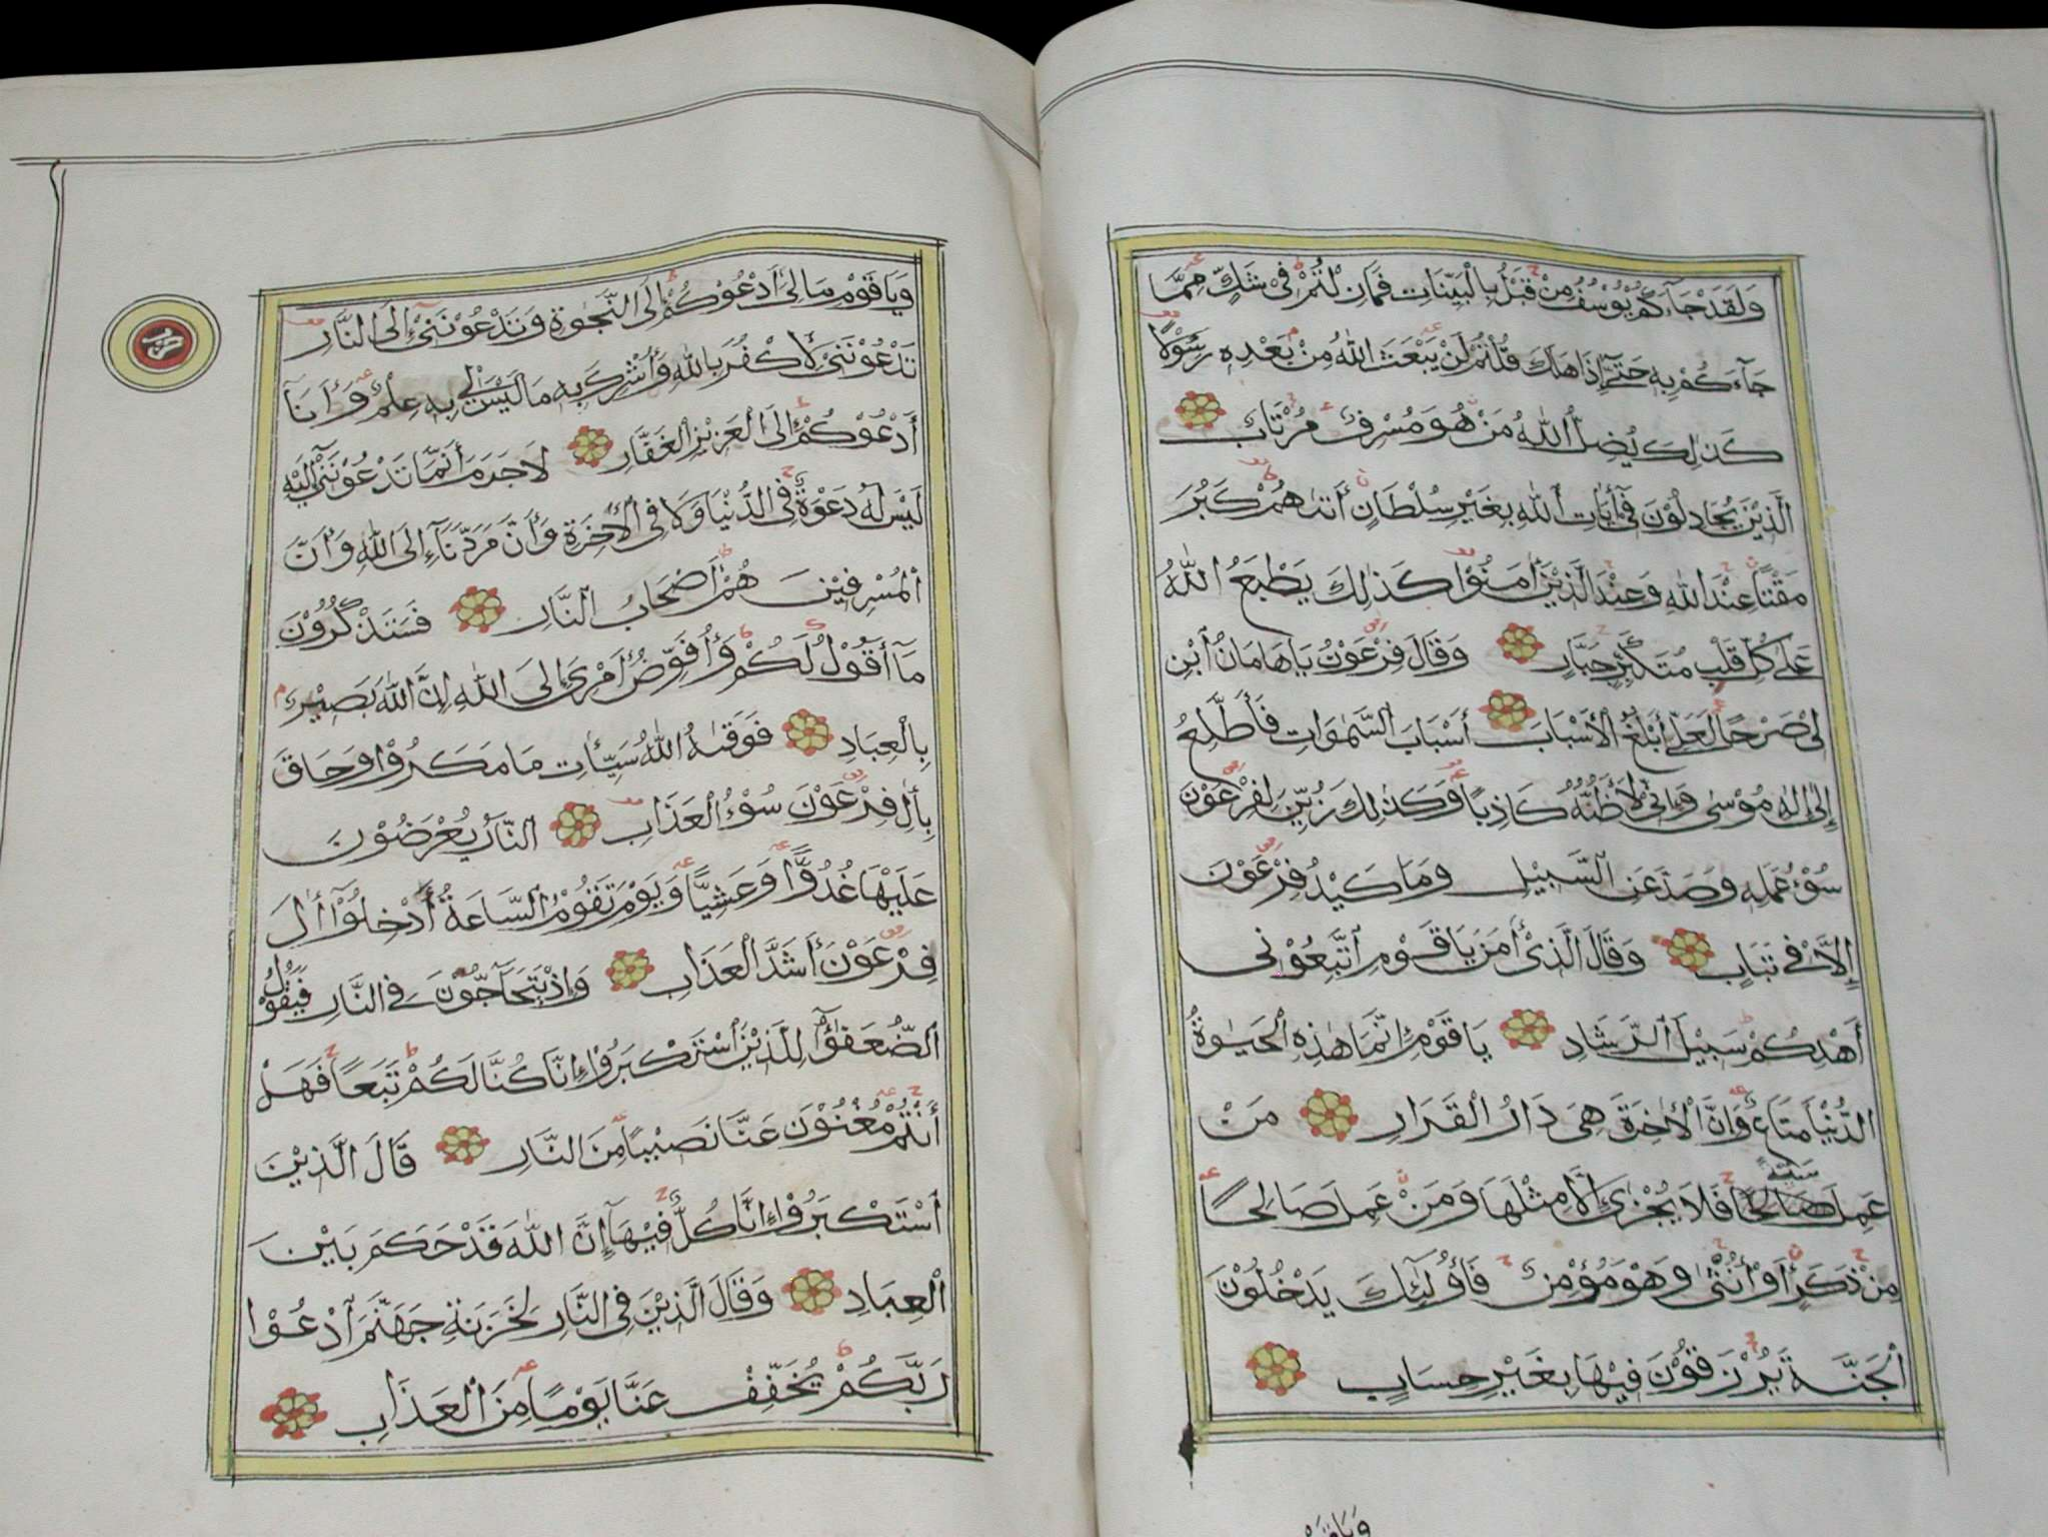 وَلَقَدْ جَآءَكُمْ يُوْسُفُ مِنْ قَبْلُ بِالْبَيِّنَاتِ فَمَازِلْتُمْ فِيْ شَكٍّ مِمَّا
جَآءَكُمْ بِهِ حَتَّىٓ إِذَا هَلَكَ قُلْتُمْ لَنْ يَبْعَثَ اللّٰهُ مِنْ بَعْدِهِ رَسُوْلًا
كَذٰلِكَ يُضِلُّ اللّٰهُ مَنْ هُوَ مُسْرِفٌ مُرْتَابٌ
الَّذِيْنَ يُجَادِلُوْنَ فِيْٓ أٰيَاتِ اللّٰهِ بِغَيْرِ سُلْطَانٍ أَتٰىهُمْ كَبُرَ
مَقْتًا عِنْدَ اللّٰهِ وَعِنْدَ الَّذِيْنَ أٰمَنُوْا كَذٰلِكَ يَطْبَعُ اللّٰهُ
عَلٰى كُلِّ قَلْبِ مُتَكَبِّرٍ جَبَّارٍ وَقَالَ فِرْعَوْنُ يَاهَامَانُ ٱبْنِ
لِيْ صَرْحًا لَعَلِّيْٓ أَبْلُغُ الْأَسْبَابَ أَسْبَابَ السَّمٰوَاتِ فَأَطَّلِعُ
إِلٰىٓ إِلٰهِ مُوْسٰى وَإِنِّيْ لَأَظُنُّهُ كَاذِبًا وَكَذٰلِكَ زُيِّنَ لِفِرْعَوْنَ
سُوْءُ عَمَلِهِ وَصَدَّ عَنِ السَّبِيْلِ وَمَا كَيْدُ فِرْعَوْنَ
إِلَّا فِيْ تَبَابٍ وَقَالَ الَّذِيْٓ أٰمَنَ يَاقَوْمِ ٱتَّبِعُوْنِي
أَهْدِكُمْ سَبِيْلَ الرَّشَادِ يَاقَوْمِ إِنَّمَا هٰذِهِ الْحَيٰوةُ
الدُّنْيَا مَتَاعٌ وَإِنَّ الْأٰخِرَةَ هِيَ دَارُ الْقَرَارِ مَنْ
سَيِّئَةً
عَمِلَ صَالِحًا فَلَا يُجْزٰىٓ إِلَّا مِثْلَهَا وَمَنْ عَمِلَ صَالِحًا
مِنْ ذَكَرٍ أَوْ أُنْثٰى وَهْوَ مُؤْمِنٌ فَأُولٰٓئِكَ يَدْخُلُوْنَ
الْجَنَّةَ يُرْزَقُوْنَ فِيْهَا بِغَيْرِ حِسَابٍ
وَيَاقَوْمِ
وَيَاقَوْمِ مَالِيْٓ أَدْعُوْكُمْ إِلَى النَّجٰوةِ وَتَدْعُوْنَنِيْٓ إِلَى النَّارِ
تَدْعُوْنَنِيْ لِأَكْفُرَ بِاللّٰهِ وَأُشْرِكَ بِهِ مَا لَيْسَ لِيْ بِهِ عِلْمٌ وَأَنَا
أَدْعُوْكُمْ إِلَى الْعَزِيْزِ الْغَفَّارِ لَا جَرَمَ أَنَّمَا تَدْعُوْنَنِيْٓ إِلَيْهِ
لَيْسَ لَهُ دَعْوَةٌ فِي الدُّنْيَا وَلَا فِي الْأٰخِرَةِ وَأَنَّ مَرَدَّنَآ إِلَى اللّٰهِ وَأَنَّ
الْمُسْرِفِيْنَ هُمْ أَصْحَابُ النَّارِ فَسَتَذْكُرُوْنَ
مَآ أَقُوْلُ لَكُمْ وَأُفَوِّضُ أَمْرِيْٓ إِلَى اللّٰهِ إِنَّ اللّٰهَ بَصِيْرٌ
بِالْعِبَادِ فَوَقٰىهُ اللّٰهُ سَيِّئَاتِ مَا مَكَرُوْا وَحَاقَ
بِأٰلِ فِرْعَوْنَ سُوْءُ الْعَذَابِ النَّارُ يُعْرَضُوْنَ
عَلَيْهَا غُدُوًّا وَعَشِيًّا وَيَوْمَ تَقُوْمُ السَّاعَةُ أَدْخِلُوْٓا أٰلَ
فِرْعَوْنَ أَشَدَّ الْعَذَابِ وَإِذْ يَتَحَآجُّوْنَ فِي النَّارِ فَيَقُوْلُ
الضُّعَفٰٓؤُا لِلَّذِيْنَ ٱسْتَكْبَرُوْٓا إِنَّا كُنَّا لَكُمْ تَبَعًا فَهَلْ
أَنْتُمْ مُغْنُوْنَ عَنَّا نَصِيْبًا مِنَ النَّارِ قَالَ الَّذِيْنَ
ٱسْتَكْبَرُوْٓا إِنَّا كُلٌّ فِيْهَآ إِنَّ اللّٰهَ قَدْ حَكَمَ بَيْنَ
الْعِبَادِ وَقَالَ الَّذِيْنَ فِي النَّارِ لِخَزَنَةِ جَهَنَّمَ ٱدْعُوْا
رَبَّكُمْ يُخَفِّفْ عَنَّا يَوْمًا مِنَ الْعَذَابِ
حزب